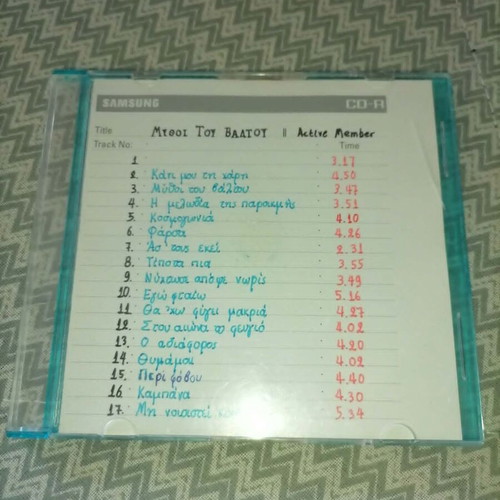 SAMSUNG CD-R
Title ΜΥΘΟΙ ΤΟΥ ΒΑΛΤΟΥ || Active Member
Track No: Time
1. 3.17
2. Κάτι μου τη χάρη 4.50
3. Μύθοι του βάλτου 3.47
4. Η μελωδία της παρακμής 3.51
5. Κοσμογωνιά 4.10
6. Φάρσα 4.26
7. Άσ' τους εκεί 2.31
8. Τίποτα πια 3.55
9. Νύχτωσε απόψε νωρίς 3.49
10. Εγώ φταίω 5.16
11. Θα 'χω φύγει μακριά 4.27
12. Στου αιώνα το φευγιό 4.02
13. Ο αδιάφορος 4.20
14. Θυμάμαι 4.02
15. Περί φόβου 4.40
16. Καμπάνα 4.30
17. Μη νοιαστεί 5.34